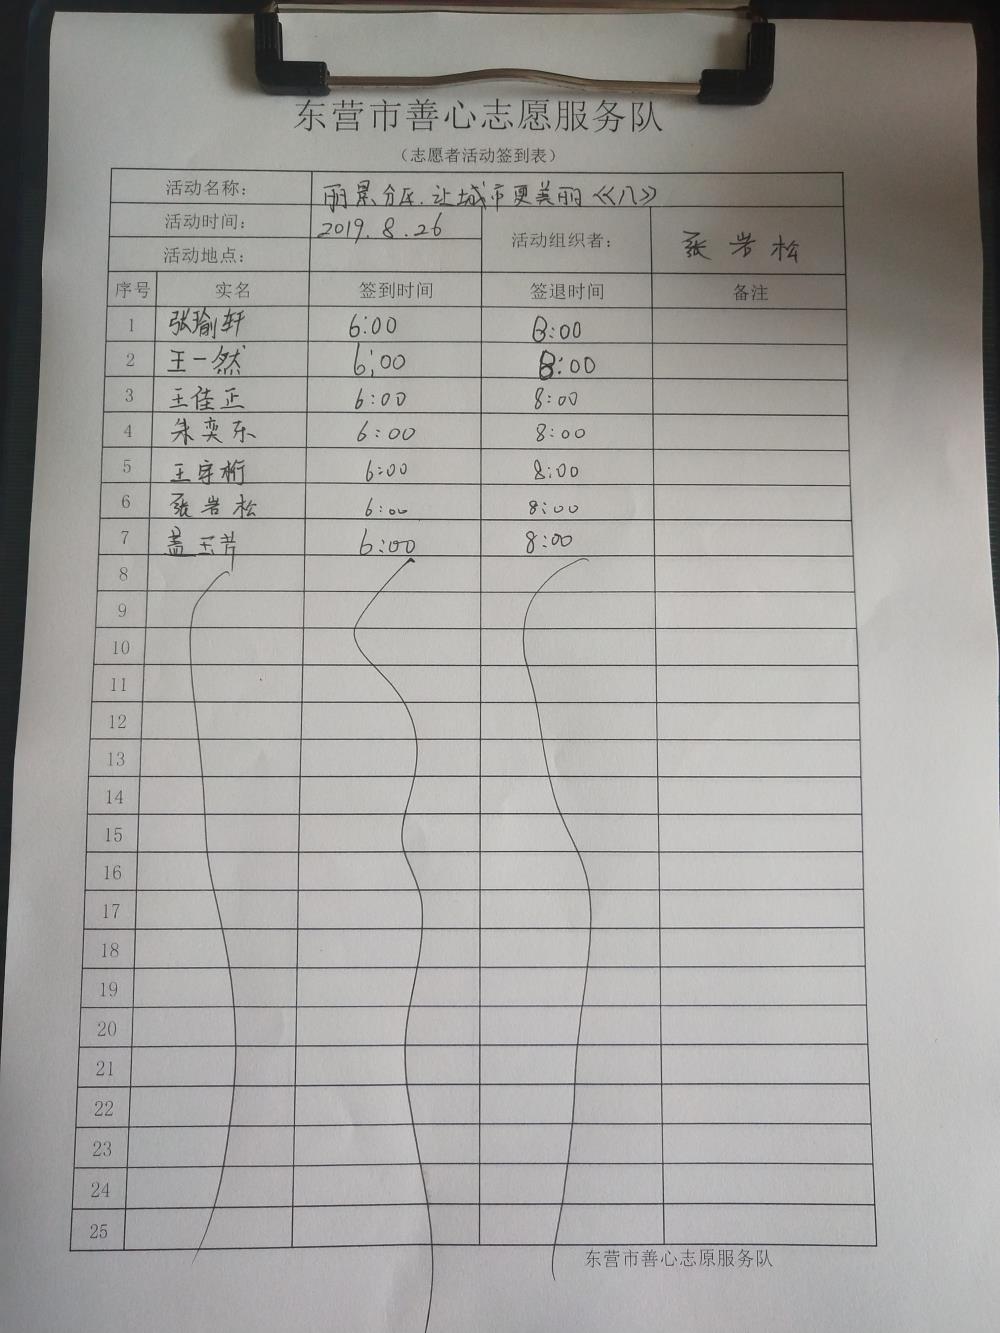 东营市善心志愿服务队
（志愿者活动签到表）
活动名称： 丽景分区.让城市更美丽《八》
活动时间： 2019.8.26 活动组织者： 张岩松
活动地点：
序号 实名 签到时间 签退时间 备注
1 张瑜轩 6:00 8:00
2 王一然 6:00 8:00
3 王佳正 6:00 8:00
4 朱奕乐 6:00 8:00
5 王宇桁 6:00 8:00
6 张岩松 6:00 8:00
7 盖玉芹 6:00 8:00
8
9
10
11
12
13
14
15
16
17
18
19
20
21
22
23
24
25
东营市善心志原服务队